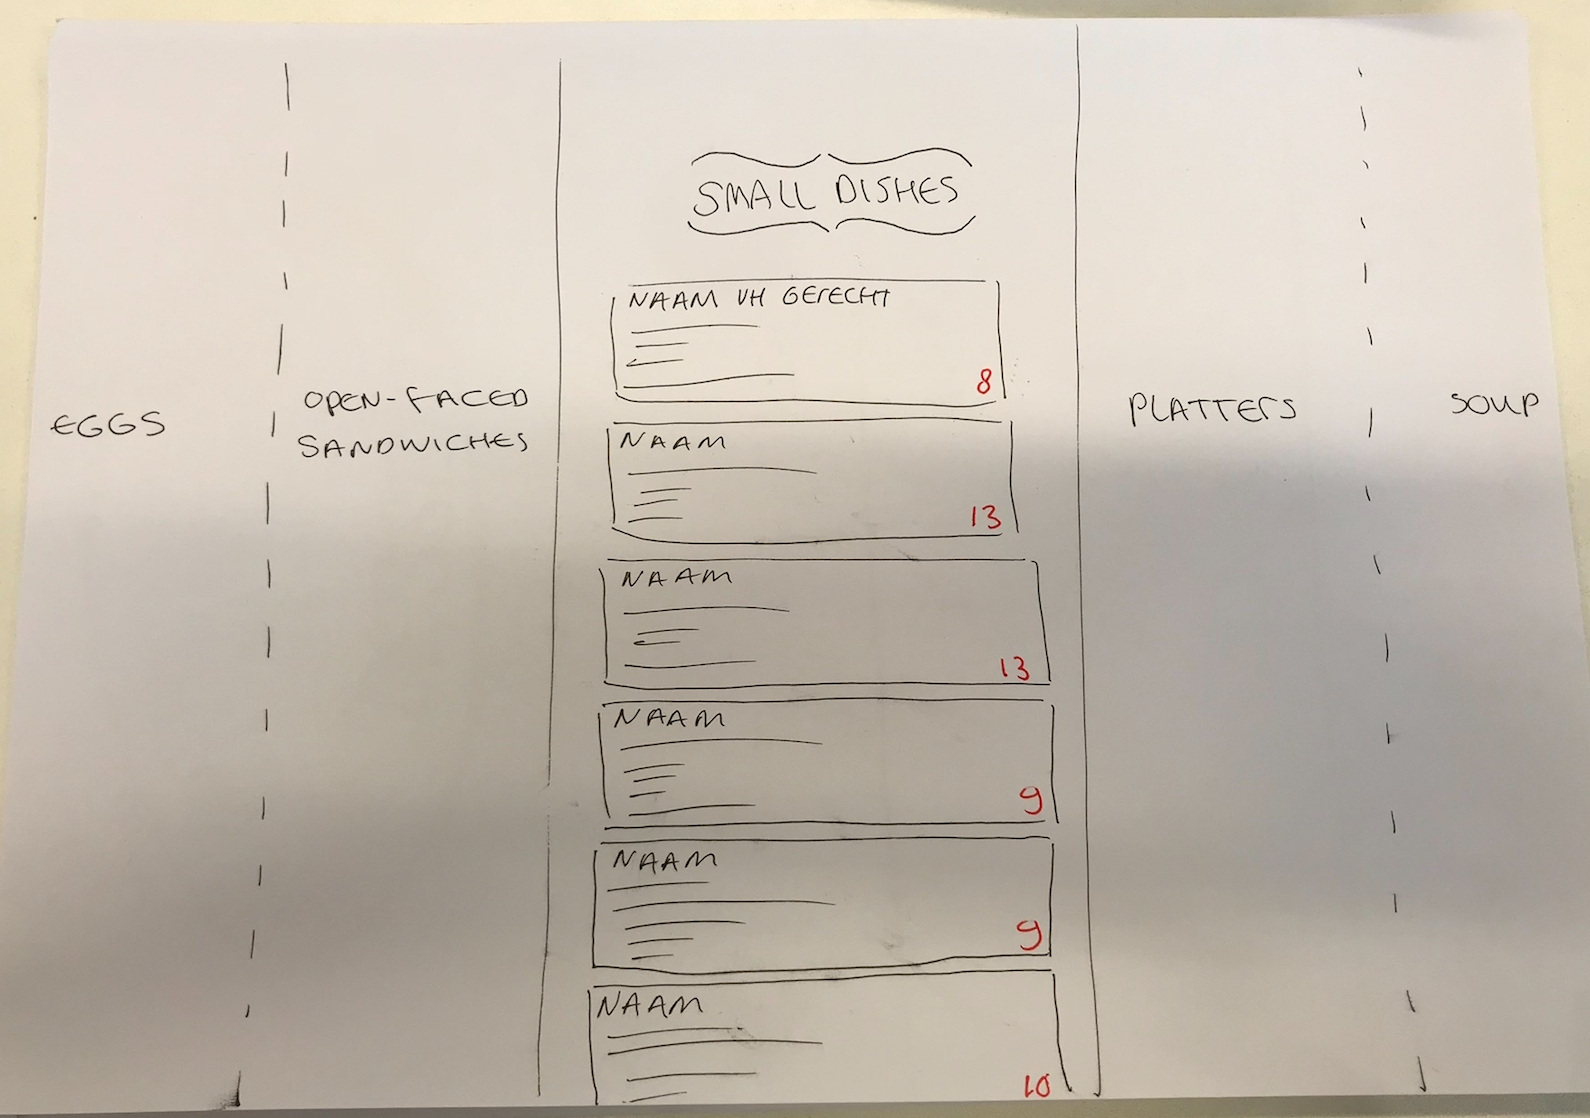 EGGS
OPEN-FACED
SANDWICHES
SMALL DISHES
NAAM VH GERECHT
8
NAAM
13
NAAM
13
NAAM
9
NAAM
9
NAAM
10
PLATTERS
SOUP